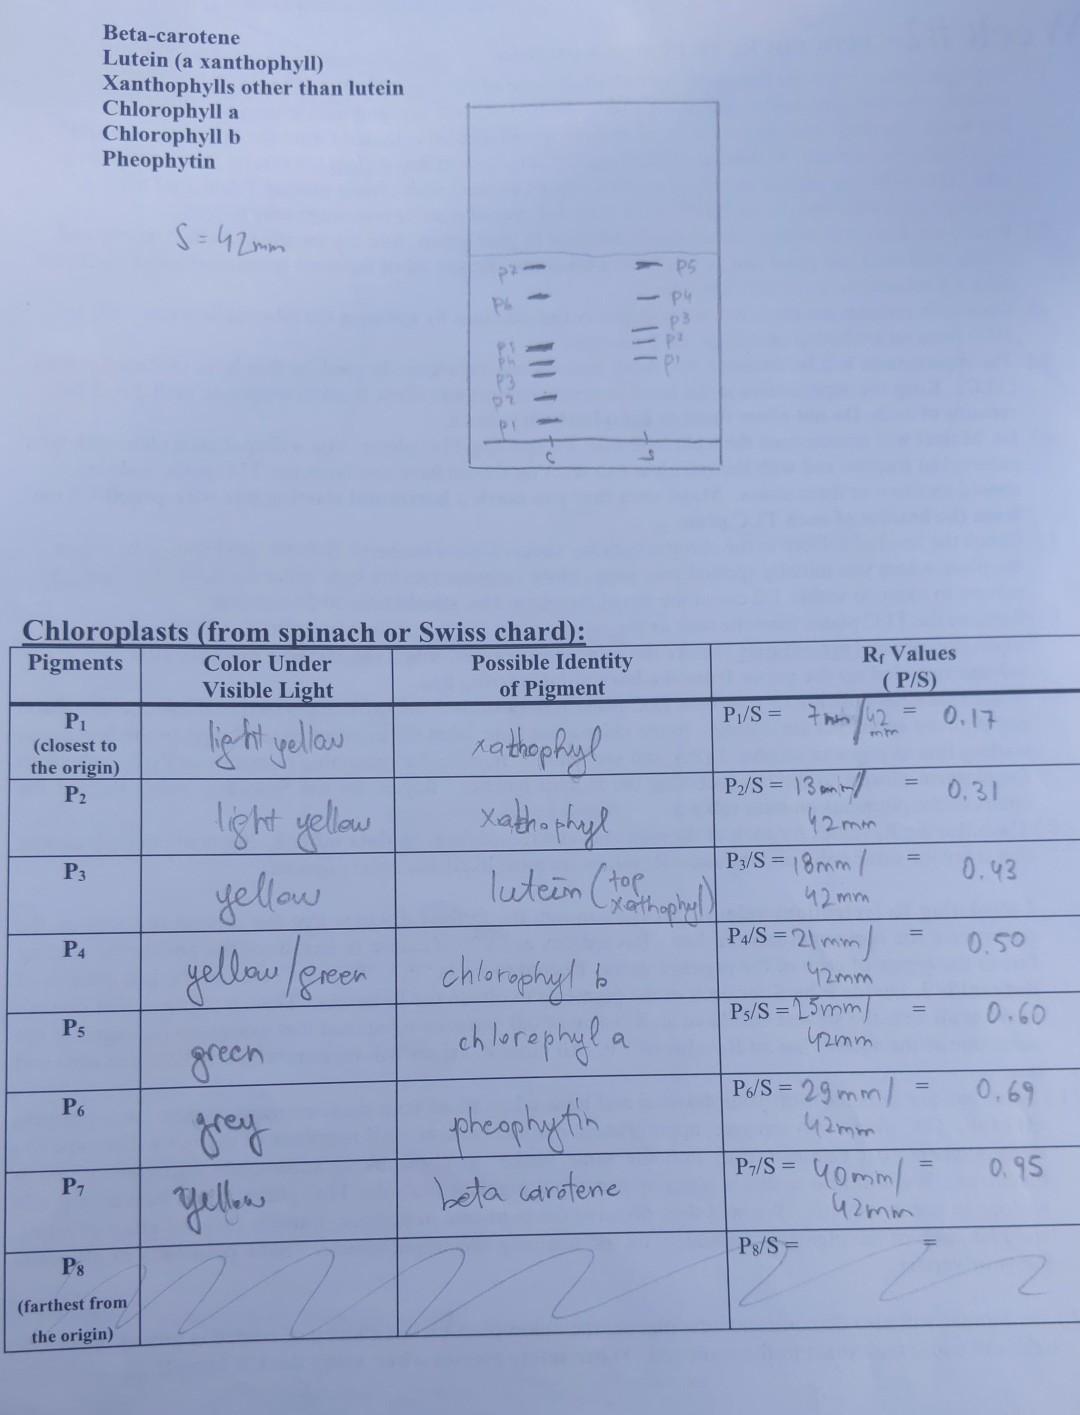 Beta-carotene
Lutein (a xanthophyll)
Xanthophylls other than lutein
Chlorophyll a
Chlorophyll b
Pheophytin
S = 42mm
P7 P5
P6 P4
P3
P5 P2
P4 P1
P3
P2
P1
C S
Chloroplasts (from spinach or Swiss chard):
Pigments Color Under Visible Light Possible Identity of Pigment Rf Values (P/S)
P1 (closest to the origin) light yellow xathophyl P1/S = 7mm/42mm = 0.17
P2 light yellow xathophyl P2/S = 13mm/42mm = 0.31
P3 yellow lutein (top xathophyl) P3/S = 18mm/42mm = 0.43
P4 yellow/green chlorophyl b P4/S = 21mm/42mm = 0.50
P5 green chlorophyl a P5/S = 25mm/42mm = 0.60
P6 grey pheophytin P6/S = 29mm/42mm = 0.69
P7 yellow beta carotene P7/S = 40mm/42mm = 0.95
P8 (farthest from the origin) P8/S = =